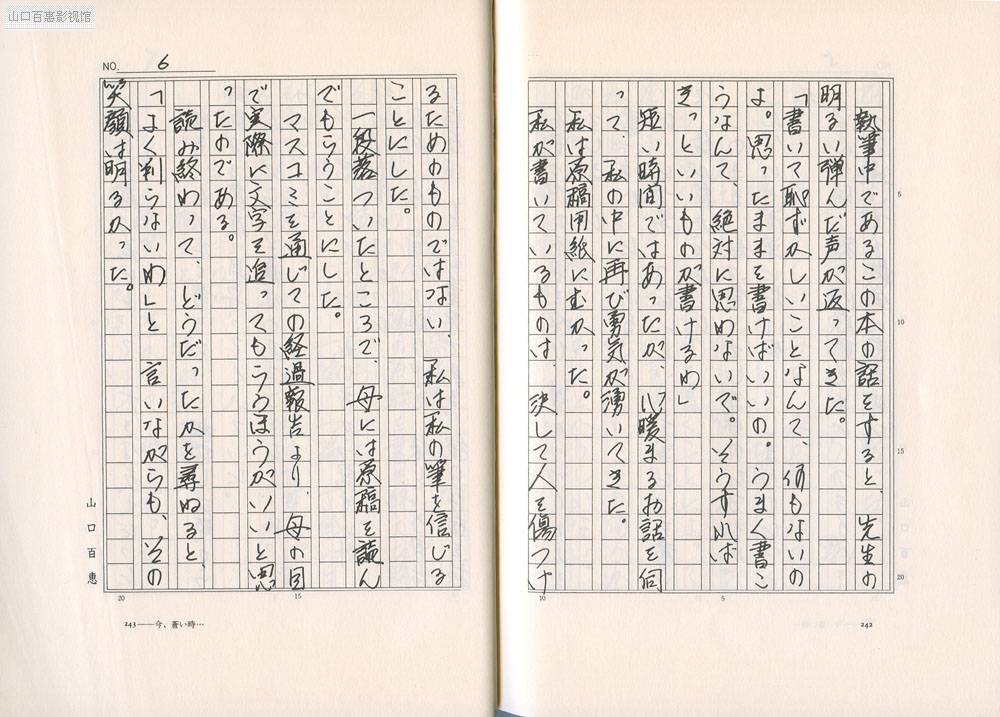 山口百惠影视馆
執筆中であるこの本の話をすると、先生の
明るい弾んだ声が返ってきた。
「書いて恥ずかしいことなんて、何もないの
よ。思ったままを書けばいいの。うまく書こ
うなんて、絶対に思わないで。そうすれば
きっといいものが書けるわ」
短い時間ではあったが、心暖まるお話を伺
って、私の中に再び勇気が湧いてきた。
私は原稿用紙にむかった。
私が書いているものは、決して人を傷つけ
5
10
15
20
10
5
242
NO. 6
るためのものではない、私は私の筆を信じる
ことにした。
一段落ついたところで、母には原稿を読ん
でもらうことにした。
マスコミを通じての経過報告より、母の目
で実際に文字を追ってもらうほうがいいと思
ったのである。
読み終わって、どうだったかを尋ねると、
「よく判らないわ」と言いながらも、その
笑顔は明るかった。
山口百惠
20
15
243──今、蒼い時…